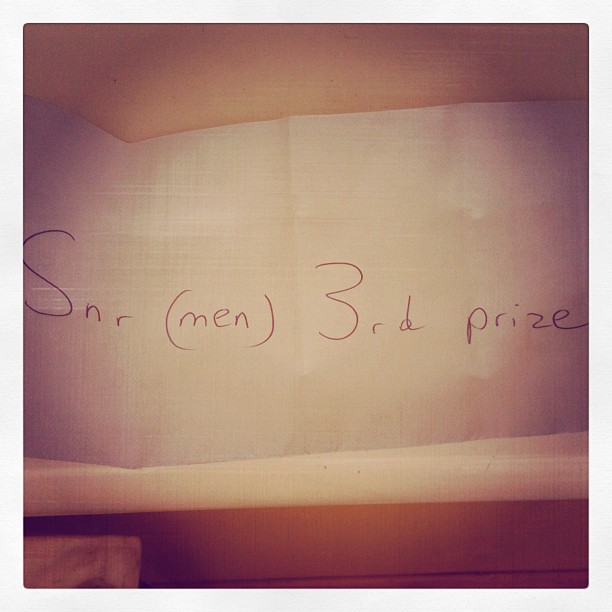 Snr (men) 3rd prize